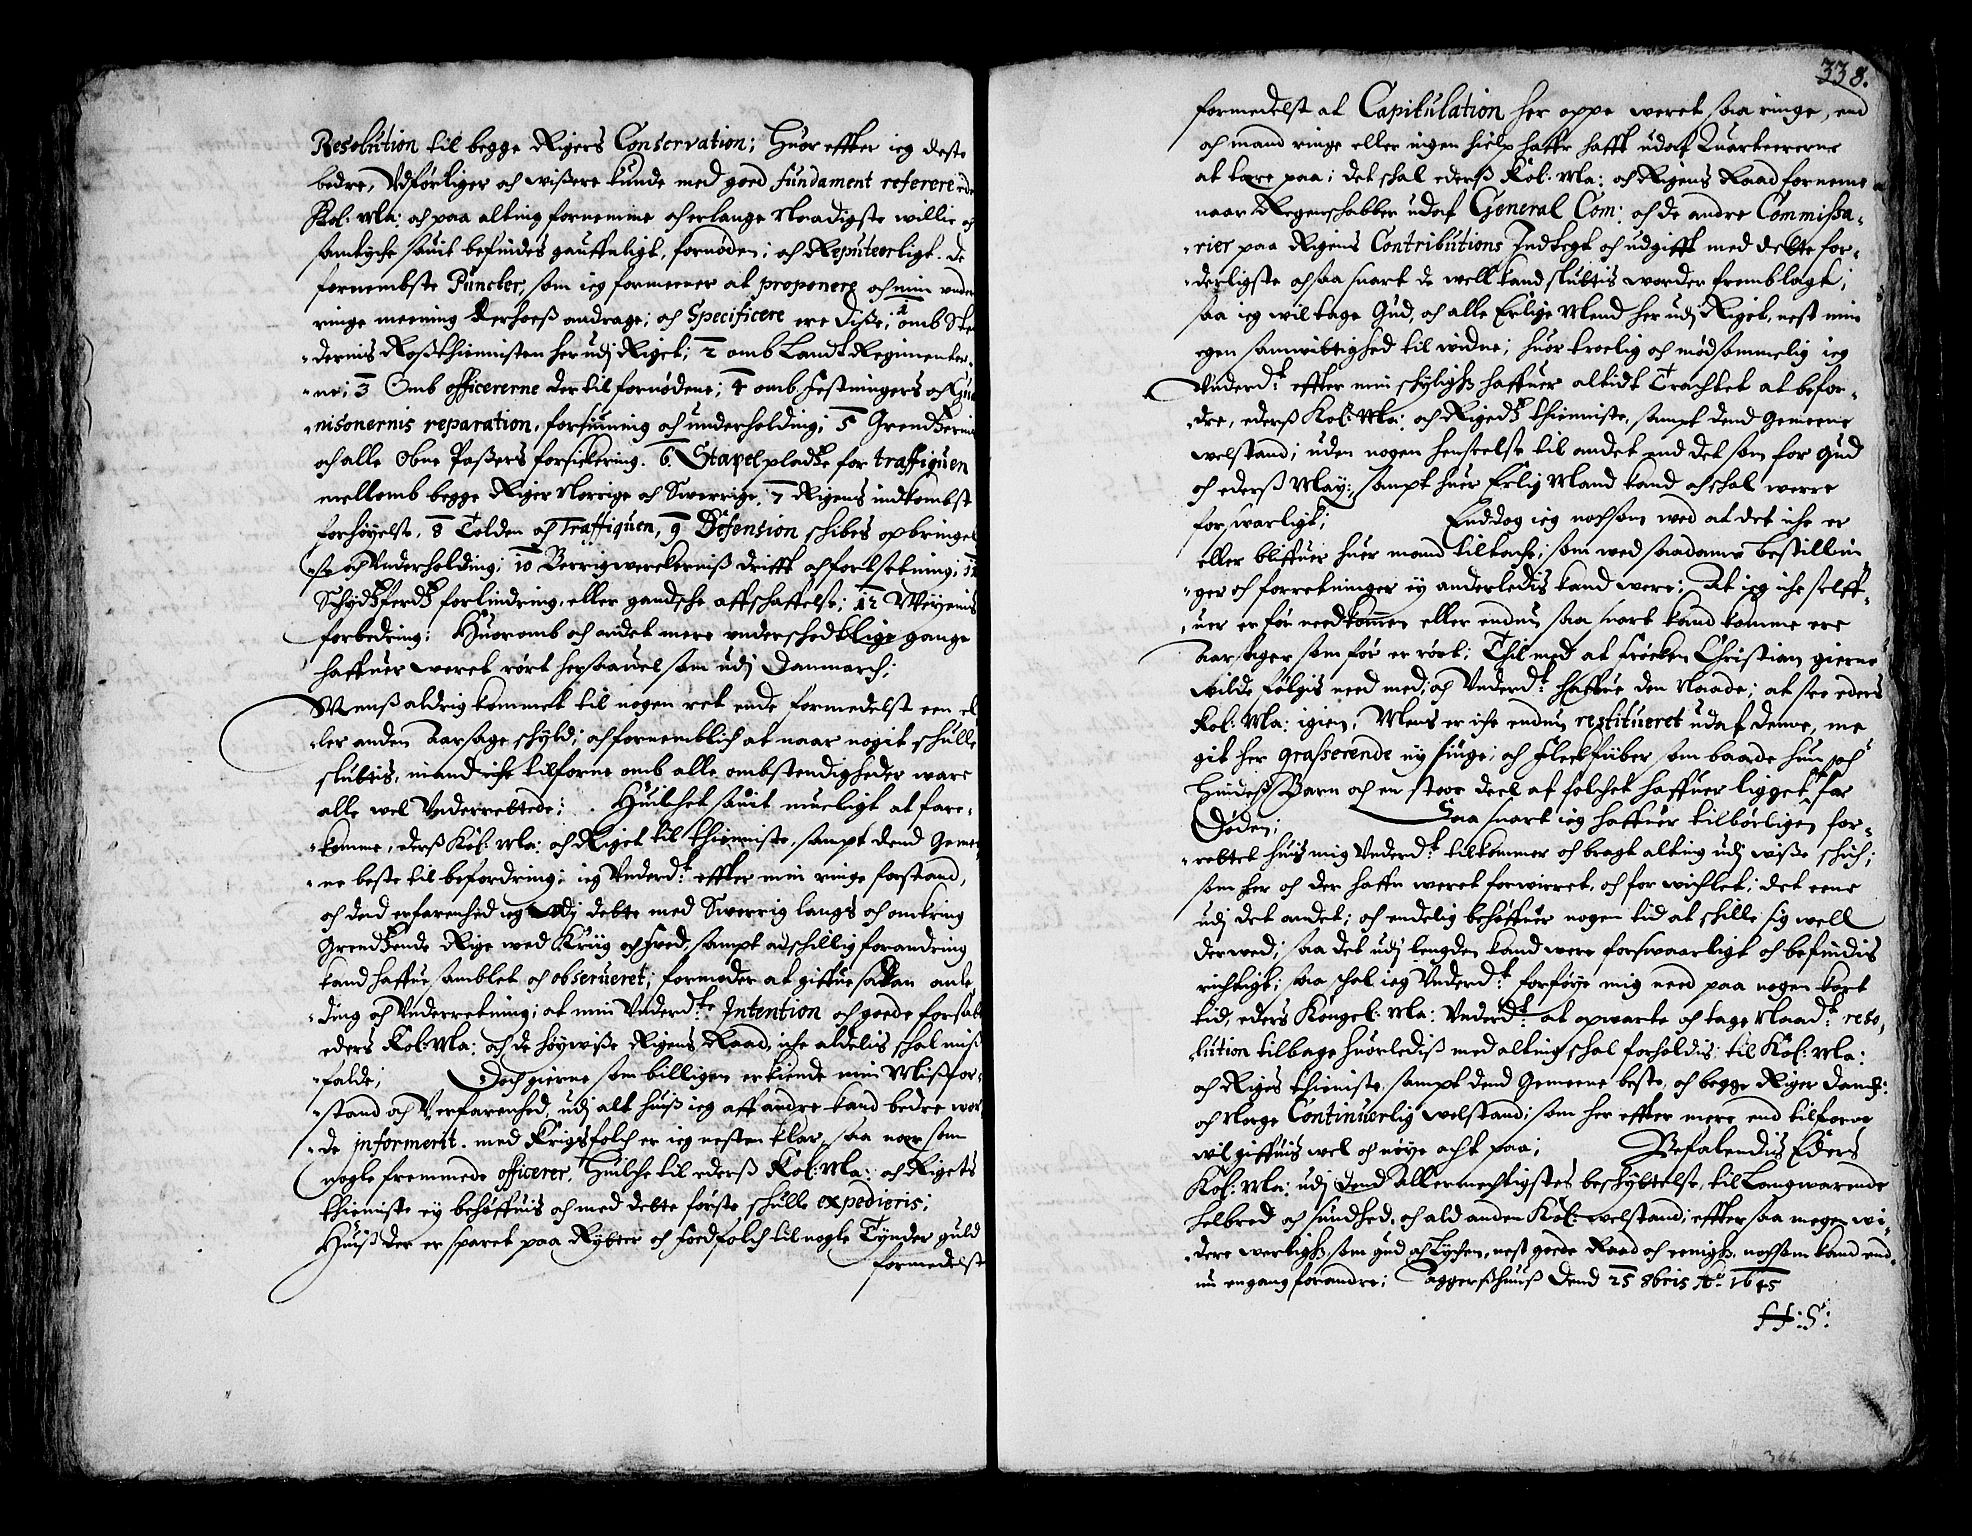 Resolution til begge Rigers Conservation; Huor effter ieg deste
bedre, Vdførliger och wißere kunde med goed fundament referere eder
Kol: Ma: och paa alting fornemme och erlange Naadigste willie och
samtyche huuit befindis gauffnligt, fornøden; och Reputeerligt. De
fornembste Puncter, som ieg formeener at proponere och min vnder
ringe meening derhoeß andrage; och Specificere ere diße; 1 omb Ste
dernis Roßthiennisten her udj Riget; 2 omb Landt Regimenter-
ne; 3 Omb officererne der til fornødene; 4 omb Festningers och Gua
nisonernis reparation, forsiuning och underholding; 5 Grendtzernis
och alle Obne Paßers forsickering. 6. Stapelpladtze for traffiquen
mellomb begge Riger Norrige och Swerrige, 7 Rigens indkombst
forhøyelse, 8 Tolden och Traffiquen, 9 Defension schibes opbringel
se och Vnderholding; 10 Berrigwerckerniß drifft och fortsetning; 11
Schydtzferdtz forlindring, eller gandsche affschaffelse; 12 Weyenis
forbedring; Huoromb och andet mere underschedtlige gange
haffuer weret rørt her saauel som udj Danmarch;
Menß aldrig kommet til nogen ret ende formedelst een el
ler anden Aarsage schyld; och fornemblich at naar nogit schulle
sluttis, mand iche tilforne omb alle ombstendigheder ware
alle wel Vnderrettede; Huilchet saauit mueligt at fore-
komme, ders Kol: Ma: och Riget til thienniste, sampt dend Gemei
ne beste til befordring; ieg Vnderd:t effter min ringe forstand,
och dend erfarenhed ieg udj dette med Swerrig langs och omkring
Grendtzende Rige wed Kriig och fred, sampt adschillig forandring
kand haffue samblet och obserueret; formoder at giffue saadan anle
ding och Vnderretning; at min Vnderd:te Intention och goede forsæt
eders Kol: Ma: och de høywiße Rigens Raad, iche aldelis schal miß
falde; Doch gierne som billigen erkiende min Mißfor-
stand och Verfarenhed, udj alt huiß ieg aff andre kand bedre wor
de informerit. med Krigsfolch er ieg nesten klar, saa nær som
nogle fremmede officerer, Huilche til ederß Kol: Ma: och Rigets
thienniste ey behøffuis och med dette første schulle expedieris;
Huiß der er sparet paa Rytter och foedfolch til nogle Tynder guld
formedelst
338.
formedelst at Capitulation her oppe weret saa ringe, end
och mand ringe eller ingen hielp haffr hafft udaf Quarteererne
at tære paa; det schal ederß Kol: Ma: och Rigens Raad fornemme
naar Regenschabber udaf General Com: och de andre Commißa-
rier paa Rigens Contributions Indtegt och udgifft med dette for-
derligste och saa snart de well kand sluttis worder fremblagt;
saa ieg wil tage Gud, och alle Erlige Mend her udj Riget, nest min
egen samwittighed til widne; huor troelig och mødsommelig ieg
Vnderd:t effter min schyligh: haffuer altidt Trachtet at befor-
dre, ederß Kol: Ma: och Rigedtz thienniste, sampt dend Gemeene
welstand; uden nogen henseelse til andet end det som for Gud
och ederß May:, sampt huer Erlig Mand kand och schal werre
forswarligt; Enddog ieg nochsom wed at det iche er
eller bliffuer huer mand tiltacht, som wed saadanne bestillin
ger och forretninger ey anderledis kand were; At ieg iche selff-
uer er før need kommen eller endnu saa snart kand komme ere
Aarsager som før er rørt; Thil med at frøcken Christian gierne
wilde følgis need med; och Vnderd:t haffue den Naade; at see eders
Kol: Ma: igien, Mens er iche endnu restitueret udaf denne, me
git her grasserende ny siuge; och Fleckfüber som baade hun och
Hindeß Barn och en stoor deel af folchet haffuer ligget for
Døden; Saa snart ieg haffuer tilbørligen for-
rettet huis mig Vnderd:t tilkommer och bragt alting udj wiße schich;
som her och der haffr weret forwirret, och forwichlet; det eene
udj det andet; och endelig behøffuer nogen tid at schille sig well
derwed; saa det udj lengden kand were forswaarligt och befindis
richtigt; saa schal ieg Vnderd:t forføye mig need paa nogen kort
tid, eders Kongel: Ma: Vnderd:t at opwarte och tage Naad:t reso,
lution tilbage huorlediß med alting schal forholdis; til Kol: Ma:
och Riges thieniste, sampt dend Gemeene beste, och begge Riger Danch:
och Norge Continuerlig welstand; som her effter mere end tilforne
wil giffuis wel och nøye acht paa; Befalendis Eders
Kol: Ma: udj dend Allermechtigstes beschyttelse, til Langwarende
helbred och sundhed, och ald anden Kol: welstand; effter saa megen wi-
dere werligh: som gud och Lychen, nest goede Raad och eenigh: nochsom kand end
nu engang forandre; Aggerßhuuß Dend 25 8bris Ao. 1645
H: S:
366